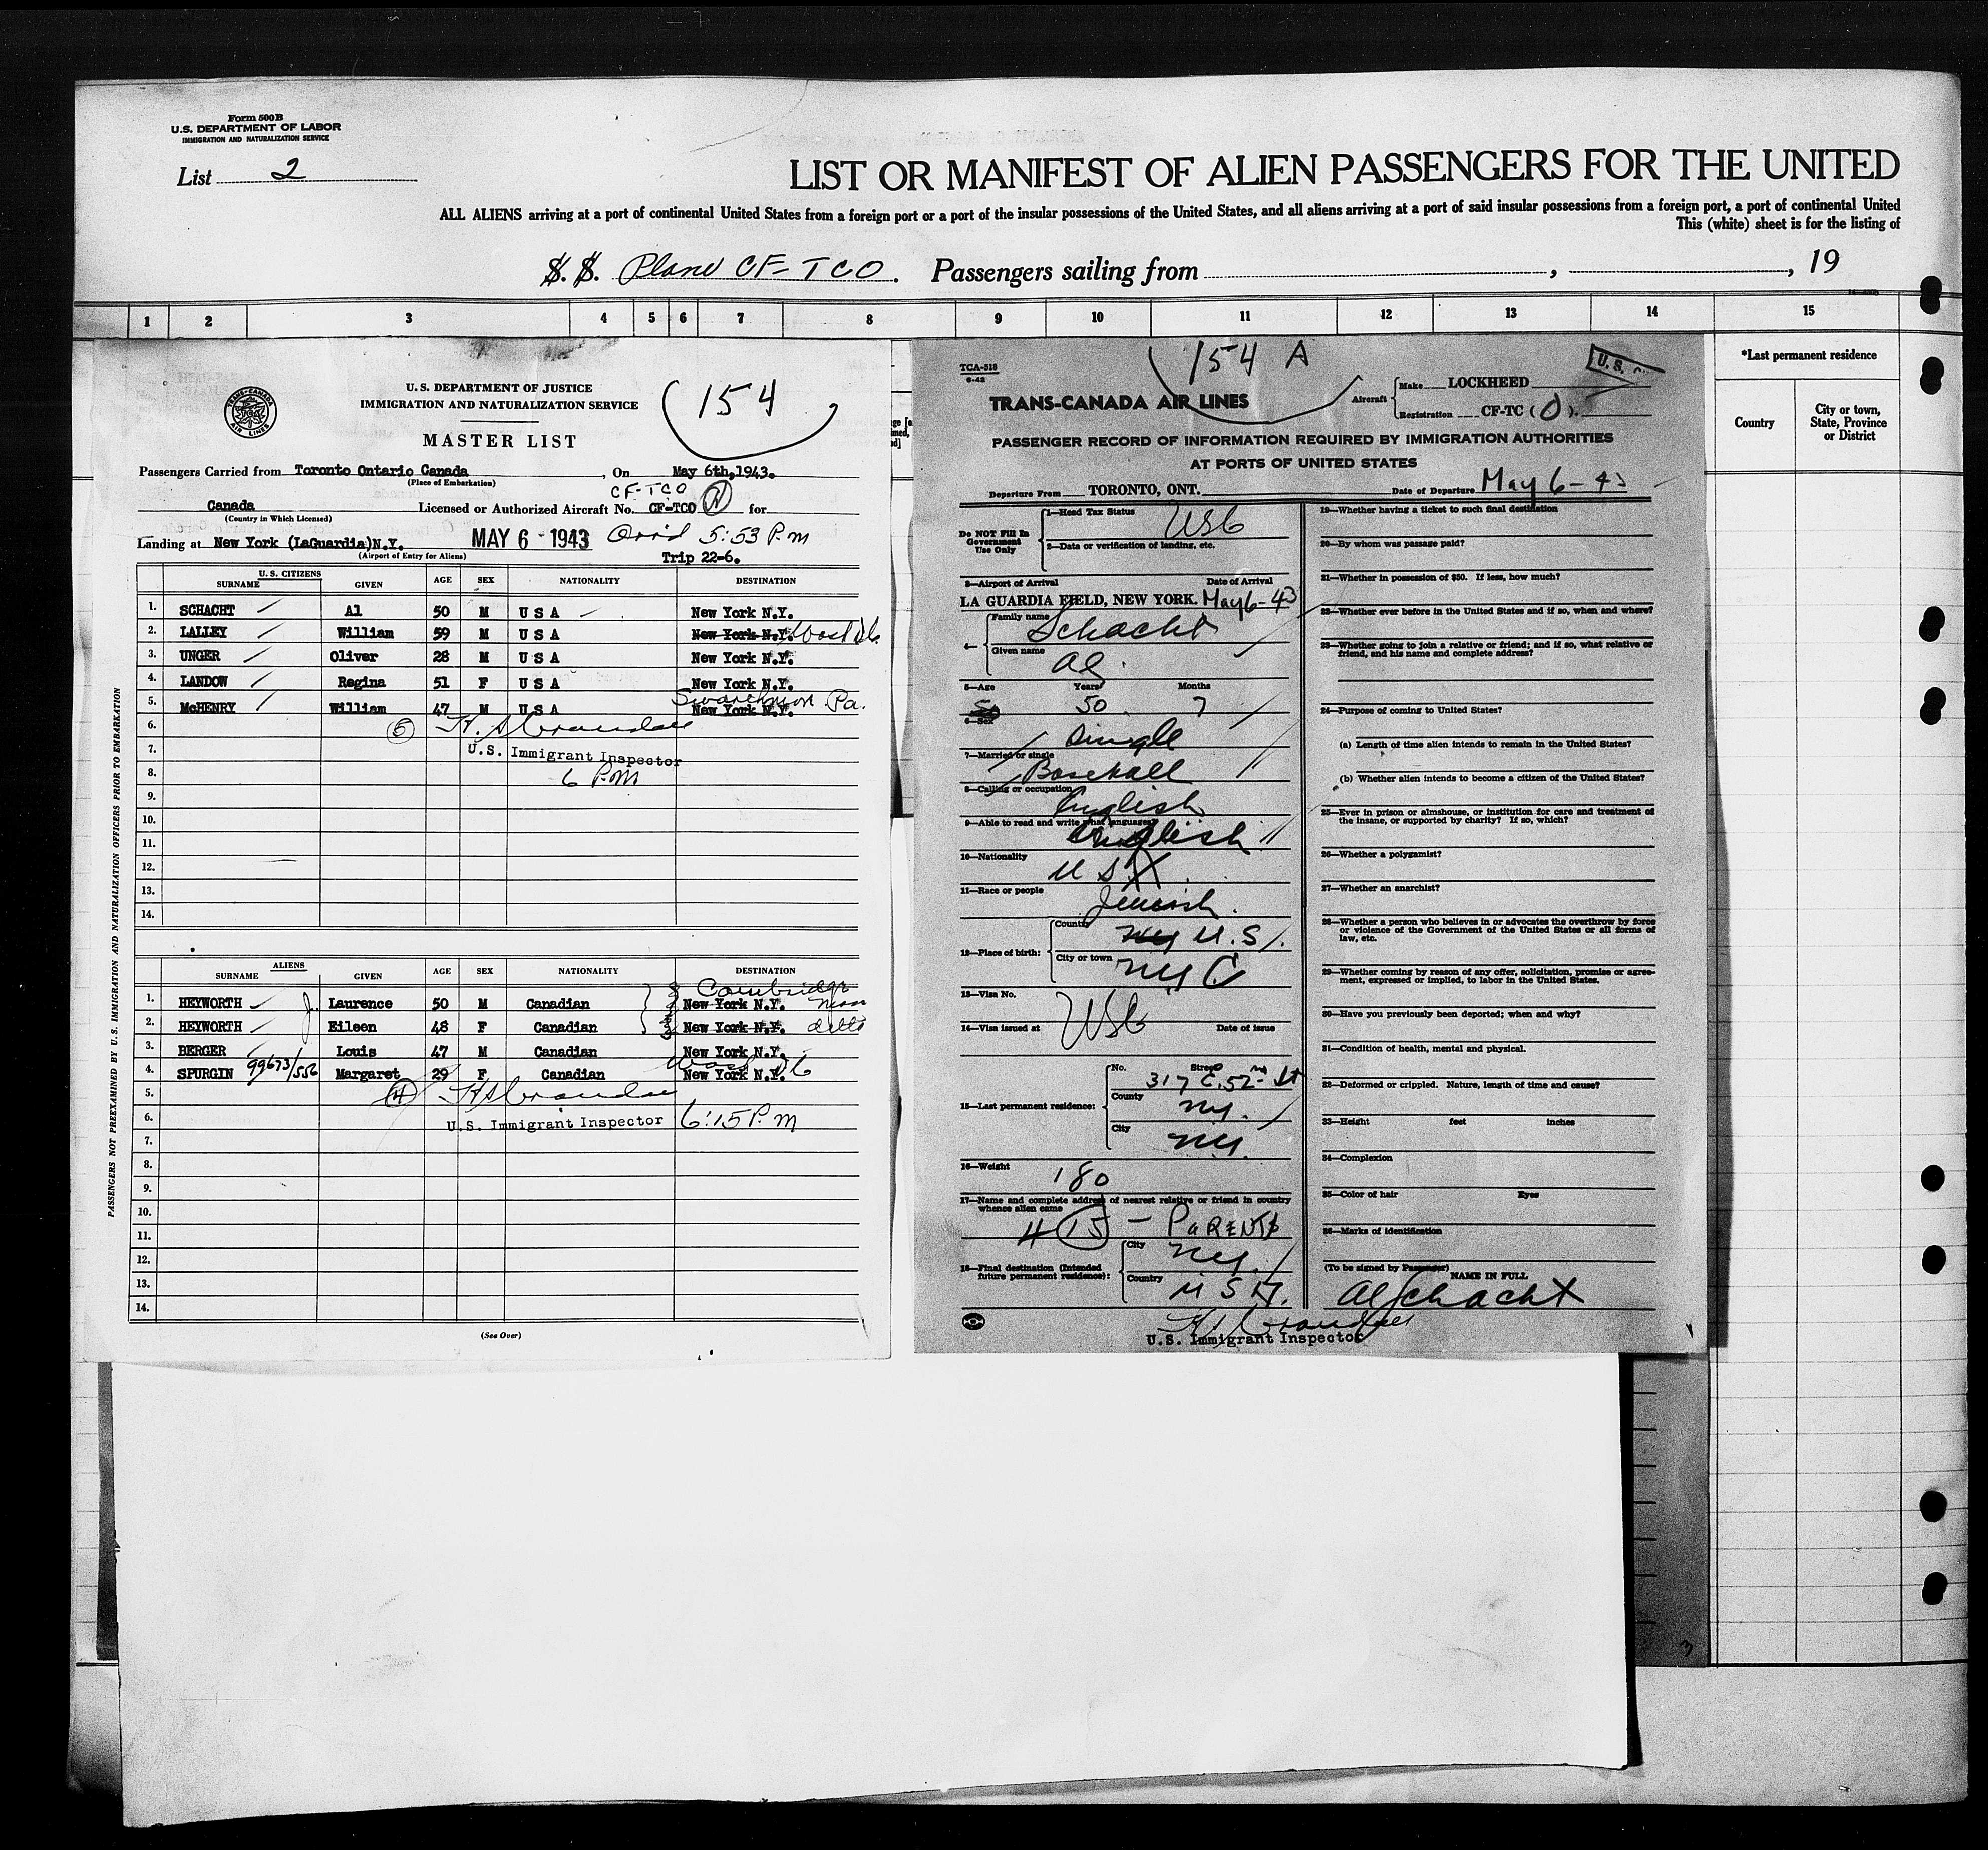 Form 500B
U.S. DEPARTMENT OF LABOR
IMMIGRATION AND NATURALIZATION SERVICE
List 2
LIST OR MANIFEST OF ALIEN PASSENGERS FOR THE UNITED
ALL ALIENS arriving at a port of continental United States from a foreign port or a port of the insular possessions of the United States, and all aliens arriving at a port of said insular possessions from a foreign port, a port of continental United
This (white) sheet is for the listing of
S.S. Plane CF-TCO. Passengers sailing from , , 19
1 2 3 4 5 6 7 8 9 10 11 12 13 14 15
*Last permanent residence
Country
City or town, State, Province or District
TRANS-CANADA AIR LINES
U.S. DEPARTMENT OF JUSTICE
IMMIGRATION AND NATURALIZATION SERVICE
154
MASTER LIST
Passengers Carried from Toronto Ontario Canada , On May 6th,1943.
(Place of Embarkation)
CF-TCO
Canada Licensed or Authorized Aircraft No. CF-TCO for
(Country in Which Licensed)
Landing at New York (LaGuardia)N.Y. MAY 6 - 1943 Arr'd 5:53 P.m
(Airport of Entry for Aliens)
Trip 22-6.
U.S. CITIZENS
SURNAME GIVEN AGE SEX NATIONALITY DESTINATION
1. SCHACHT Al 50 M U S A New York N.Y.
2. LALLEY William 59 M U S A New York N.Y. Wash DC
3. UNGER Oliver 28 M U S A New York N.Y.
4. LANDOW Regina 51 F U S A New York N.Y.
Swarthmore Pa.
5. McHENRY William 47 M U S A New York N.Y.
6. 5
7. U.S. Immigrant Inspector
8. 6 P.M
9.
10.
11.
12.
13.
14.
ALIENS
SURNAME GIVEN AGE SEX NATIONALITY DESTINATION
Cambridge
1. HEYWORTH J. Laurence 50 M Canadian New York N.Y. Mass
2. HEYWORTH Eileen 48 F Canadian New York N.Y. ditto
3. BERGER Louis 47 M Canadian New York N.Y.
Wash DC
4. SPURGIN 99673/556 Margaret 29 F Canadian New York N.Y.
5. 4
6. U.S. Immigrant Inspector 6:15 P.M
7.
8.
9.
10.
11.
12.
13.
14.
(See Over)
PASSENGERS NOT PREEXAMINED BY U.S. IMMIGRATION AND NATURALIZATION OFFICERS PRIOR TO EMBARKATION
TCA-518
6-42
154 A
U.S.
TRANS-CANADA AIR LINES
Aircraft Make LOCKHEED
Registration CF-TC (O).
PASSENGER RECORD OF INFORMATION REQUIRED BY IMMIGRATION AUTHORITIES
AT PORTS OF UNITED STATES
Departure From TORONTO, ONT. Date of Departure May 6-43
Do NOT Fill In Government Use Only
1—Head Tax Status USC
2—Data or verification of landing, etc.
3—Airport of Arrival Date of Arrival
LA GUARDIA FIELD, NEW YORK. May 6-43
4— Family name Schacht
Given name Al.
5—Age Years Months
50 7
6—Sex
Single
7—Married or single
Baseball
8—Calling or occupation
English
9—Able to read and write what language?
English
10—Nationality
U S A
11—Race or people
Jewish.
12—Place of birth: Country NY U.S.
City or town NYC
13—Visa No.
USC
14—Visa issued at Date of issue
15—Last permanent residence: No. Street
317 E. 52nd St
County NY.
City NY.
16—Weight
180
17—Name and complete address of nearest relative or friend in country whence alien came
# 15 - PARENTS
18—Final destination (Intended future permanent residence): City NY.
Country U S A.
19—Whether having a ticket to such final destination
20—By whom was passage paid?
21—Whether in possession of $50. If less, how much?
22—Whether ever before in the United States and if so, when and where?
23—Whether going to join a relative or friend; and if so, what relative or friend, and his name and complete address?
24—Purpose of coming to United States?
(a) Length of time alien intends to remain in the United States?
(b) Whether alien intends to become a citizen of the United States?
25—Ever in prison or almshouse, or institution for care and treatment of the insane, or supported by charity? If so, which?
26—Whether a polygamist?
27—Whether an anarchist?
28—Whether a person who believes in or advocates the overthrow by force or violence of the Government of the United States or all forms of law, etc.
29—Whether coming by reason of any offer, solicitation, promise or agreement, expressed or implied, to labor in the United States.
30—Have you previously been deported; when and why?
31—Condition of health, mental and physical.
32—Deformed or crippled. Nature, length of time and cause?
33—Height feet inches
34—Complexion
35—Color of hair Eyes
36—Marks of identification
(To be signed by Passenger)
NAME IN FULL
Al Schacht
U.S. Immigrant Inspector
3